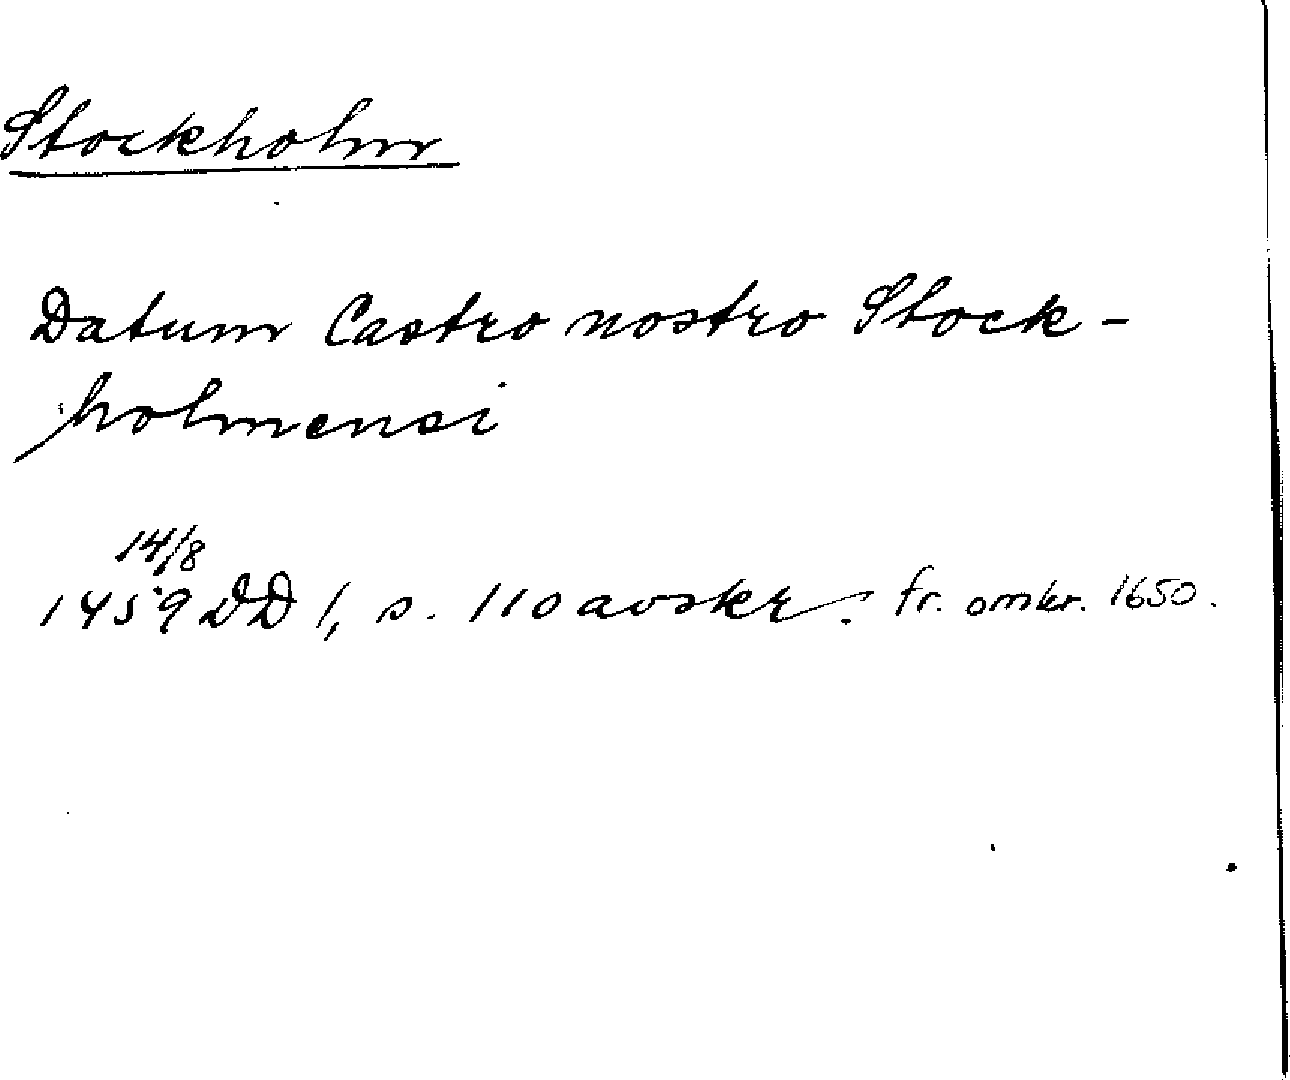 Stockholm
Datum Castro nostro Stock-
holmensi
14/8
1459 DD 1, s. 110 avskr. fr. omkr. 1650.